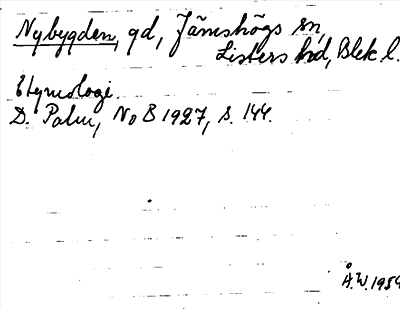 Nybygden, gd, Jämshögs sn,
Listers hd, Blek l.
Etymologi.
D. Palm, NoB 1927, s. 144.
Å.W. 1954